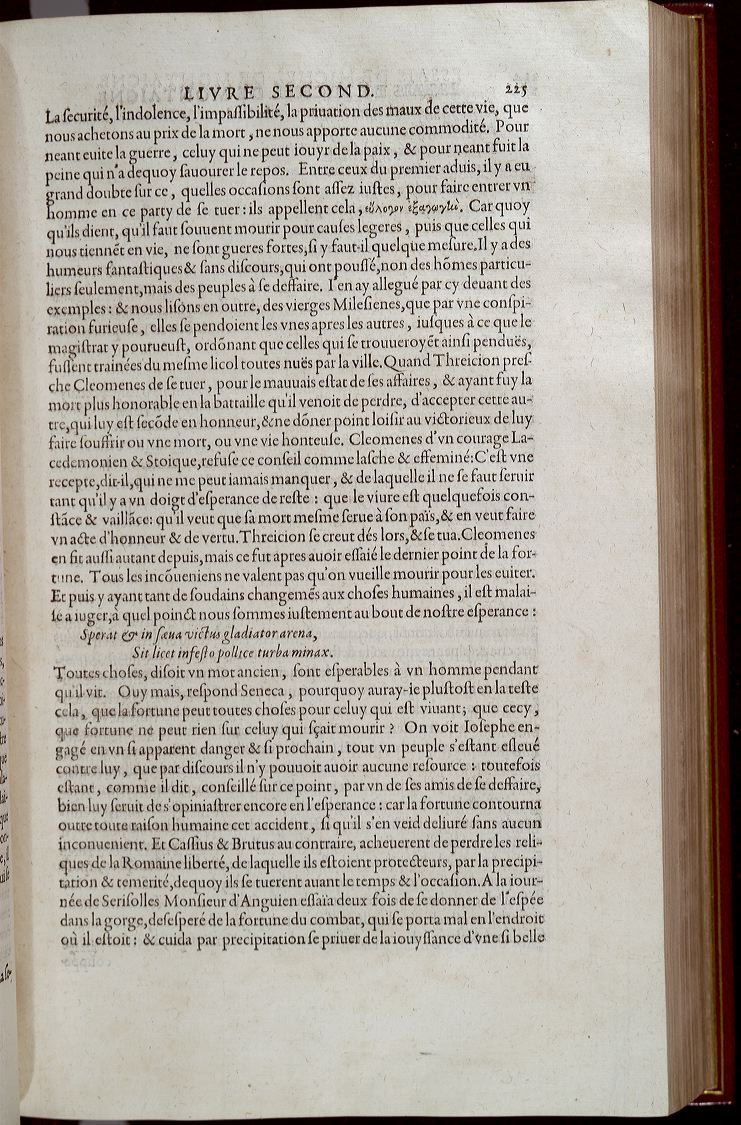 LIVRE SECOND. 225
La ſecurité, l'indolence, l'impaſſibilité, la priuation des maux de cette vie, que
nous achetons au prix de la mort, ne nous apporte aucune commodité. Pour
neant euite la guerre, celuy qui ne peut iouyr de la paix, & pour neant fuit la
peine qui n'a dequoy ſauourer le repos. Entre ceux du premier aduis, il y a eu
grand doubte ſur ce, quelles occaſions ſont aſſez iuſtes, pour faire entrer vn
homme en ce party de ſe tuer: ils appellent cela, εὔλογον ἐξαγωγὴν. Car quoy
qu'ils dient, qu'il faut ſouuent mourir pour cauſes legeres, puis que celles qui
nous tiennẽt en vie, ne ſont gueres fortes, ſi y faut-il quelque meſure. Il y a des
humeurs fantaſtiques & ſans diſcours, qui ont pouſſé, non des hõmes particu-
liers ſeulement, mais des peuples à ſe deffaire. I'en ay allegué par cy deuant des
exemples: & nous liſons en outre, des vierges Mileſienes, que par vne conſpi-
ration furieuſe, elles ſe pendoient les vnes apres les autres, iuſques à ce que le
magiſtrat y pourueuſt, ordõnant que celles qui ſe trouueroyẽt ainſi penduës,
fuſſent trainées du meſme licol toutes nuës par la ville. Quand Threicion preſ-
che Cleomenes de ſe tuer, pour le mauuais eſtat de ſes affaires, & ayant fuy la
mort plus honorable en la battaille qu'il venoit de perdre, d'accepter cette au-
tre, qui luy eſt ſecõde en honneur, & ne dõner point loiſir au victorieux de luy
faire ſouffrir ou vne mort, ou vne vie honteuſe. Cleomenes d'vn courage La-
cedemonien & Stoique, refuſe ce conſeil comme laſche & effeminé: C'eſt vne
recepte, dit-il, qui ne me peut iamais manquer, & de laquelle il ne ſe faut ſeruir
tant qu'il y a vn doigt d'eſperance de reſte: que le viure eſt quelquefois con-
ſtãce & vaillãce: qu'il veut que ſa mort meſme ſerue à ſon païs, & en veut faire
vn acte d'honneur & de vertu. Threicion ſe creut dés lors, & ſe tua. Cleomenes
en fit auſſi autant depuis, mais ce fut apres auoir eſſaié le dernier point de la for-
tune. Tous les incõueniens ne valent pas qu'on vueille mourir pour les euiter.
Et puis y ayant tant de ſoudains changemẽs aux choſes humaines, il eſt malai-
ſé a iuger, à quel poinct nous ſommes iuſtement au bout de noſtre eſperance:
Sperat & in ſæua victus gladiator arena,
Sit licet infeſto pollice turba minax.
Toutes choſes, diſoit vn mot ancien, ſont eſperables à vn homme pendant
qu'il vit. Ouy mais, reſpond Seneca, pourquoy auray-ie pluſtoſt en la teſte
cela, que la fortune peut toutes choſes pour celuy qui eſt viuant; que cecy,
que fortune ne peut rien ſur celuy qui ſçait mourir? On voit Ioſephe en-
gagé en vn ſi apparent danger & ſi prochain, tout vn peuple s'eſtant eſleué
contre luy, que par diſcours il n'y pouuoit auoir aucune reſource: toutefois
eſtant, comme il dit, conſeillé ſur ce point, par vn de ſes amis de ſe deffaire,
bien luy ſeruit de s'opiniaſtrer encore en l'eſperance: car la fortune contourna
outre toute raiſon humaine cet accident, ſi qu'il s'en veid deliuré ſans aucun
inconuenient. Et Caſſius & Brutus au contraire, acheuerent de perdre les reli-
ques de la Romaine liberté, de laquelle ils eſtoient protecteurs, par la precipi-
tation & temerité, dequoy ils ſe tuerent auant le temps & l'occaſion. A la iour-
née de Seriſolles Monſieur d'Anguien eſſaïa deux fois de ſe donner de l'eſpée
dans la gorge, deſeſperé de la fortune du combat, qui ſe porta mal en l'endroit
où il eſtoit: & cuida par precipitation ſe priuer de la iouyſſance d'vne ſi belle